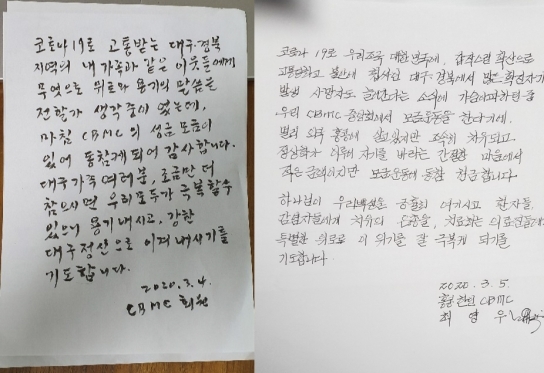 코로나19로 고통받는 대구·경북
지역의 내 가족과 같은 이웃들에게
무엇으로 위로와 용기의 말씀을
전할가 생각중이 였는데,
마침 CBMC의 성금 모금이
있어 동참케되어 감사합니다.
대구가족 여러분, 조금만 더
참으시면 우리모두가 극복할수
있으니 용기내시고, 강한
대구정신으로 이겨내시기를
기도합니다.
2020. 3. 4.
CBMC 회원
코로나 19로 우리조국 대한민국에, 갑작스런 확산으로
고통당하고 불안에 휩싸인 대구·경북에서 많은 확진자가
발생 사망자도 늘어난다는 소식에 가슴아파하던 중
우리 CBMC 중앙회에서 모금운동을 한다기에,
멀리 이국 홍콩에 살고있지만 조속히 치유되고
정상화가 이루어 지기를 바라는 간절한 마음에서
작은 금액이지만 모금운동에 동참 송금합니다.
하나님이 우리백성을 긍휼히 여기시고 환자들,
감염자들에게 치유의 은총을, 치료하는 의료진들에게
특별한 위로로 이 위기를 잘 극복케 되기를
기도합니다.
2020. 3. 5.
홍콩한인 CBMC
최 영 우